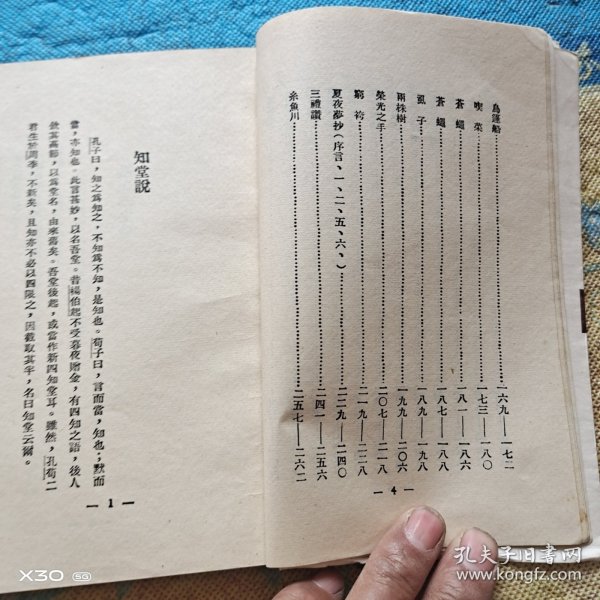 烏篷船……一六九—一七二
喫菜……一七三—一八〇
蒼蠅……一八一—一八六
蒼蠅……一八七—一八八
虱子……一八九—一九八
兩株樹……一九九—二〇六
榮光之手……二〇七—二一八
窮袴……二一九—二二八
夏夜夢抄（序言、一、二、五、六、）……二二九—二四〇
三禮讚……二四一—二五六
糸魚川……二五七—二六二
— 4 —
知堂說
孔子曰，知之爲知之，不知爲不知，是知也。荀子曰，言而當，知也；默而
當，亦知也。此言甚妙，以名吾堂。昔楊伯起不受暮夜贈金，有四知之語，後人
欽其高節，以爲堂名，由來舊矣。吾堂後起，或當作新四知堂耳。雖然，孔荀二
君生於周季，不新矣，且知亦不必以四限之，因截取其半，名曰知堂云爾。
— 1 —
X30 5G
孔夫子旧书网
www.kongfz.com